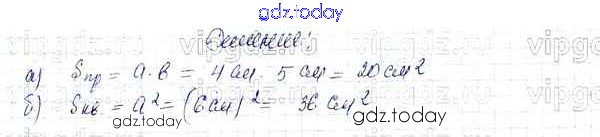 gdz.today
Решение:
а) Sпр = a · в = 4 см · 5 см = 20 см²
б) Sкв. = a² = (6 см)² = 36 см²
gdz.today